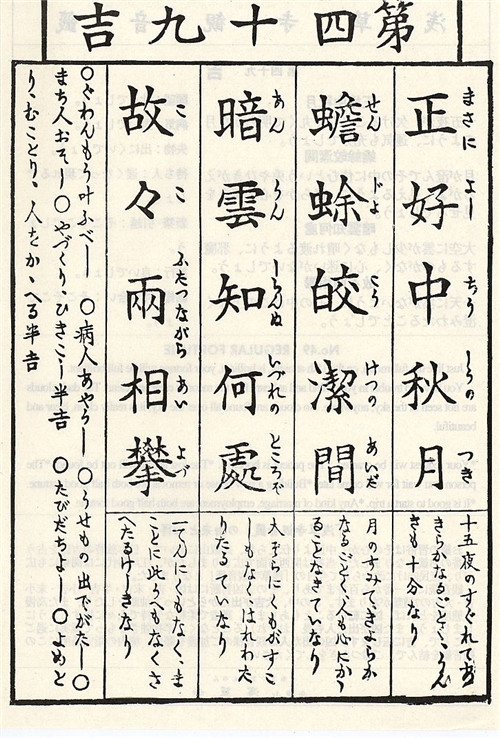 第四十九吉
まさによしちうしうのつき
正好中秋月
十五夜のすぐれてあ
きらかなるごとく、うん
きも十分なり
せんじよかうけつのあいだ
蟾蜍皎潔間
月のすみて、きよらか
なるごとく人も心にかゝ
ることなきていなり
あんうんしらんぬいづれのところぞ
暗雲知何處
大ぞらにくもがすこ
しもなく、はれわた
りたるていなり
ここふたつながらあいよづ
故々兩相攀
一てんにくもなく、ま
ことに此うへもなくさ
へたるけしきなり
〇ぐわんもう叶ふべし 〇病人あやうし 〇うせもの出でがたし〇
まち人おそし〇やづくり、ひきこし半吉 〇たびだちよし〇よめと
り、むことり、人をかゝへる半吉